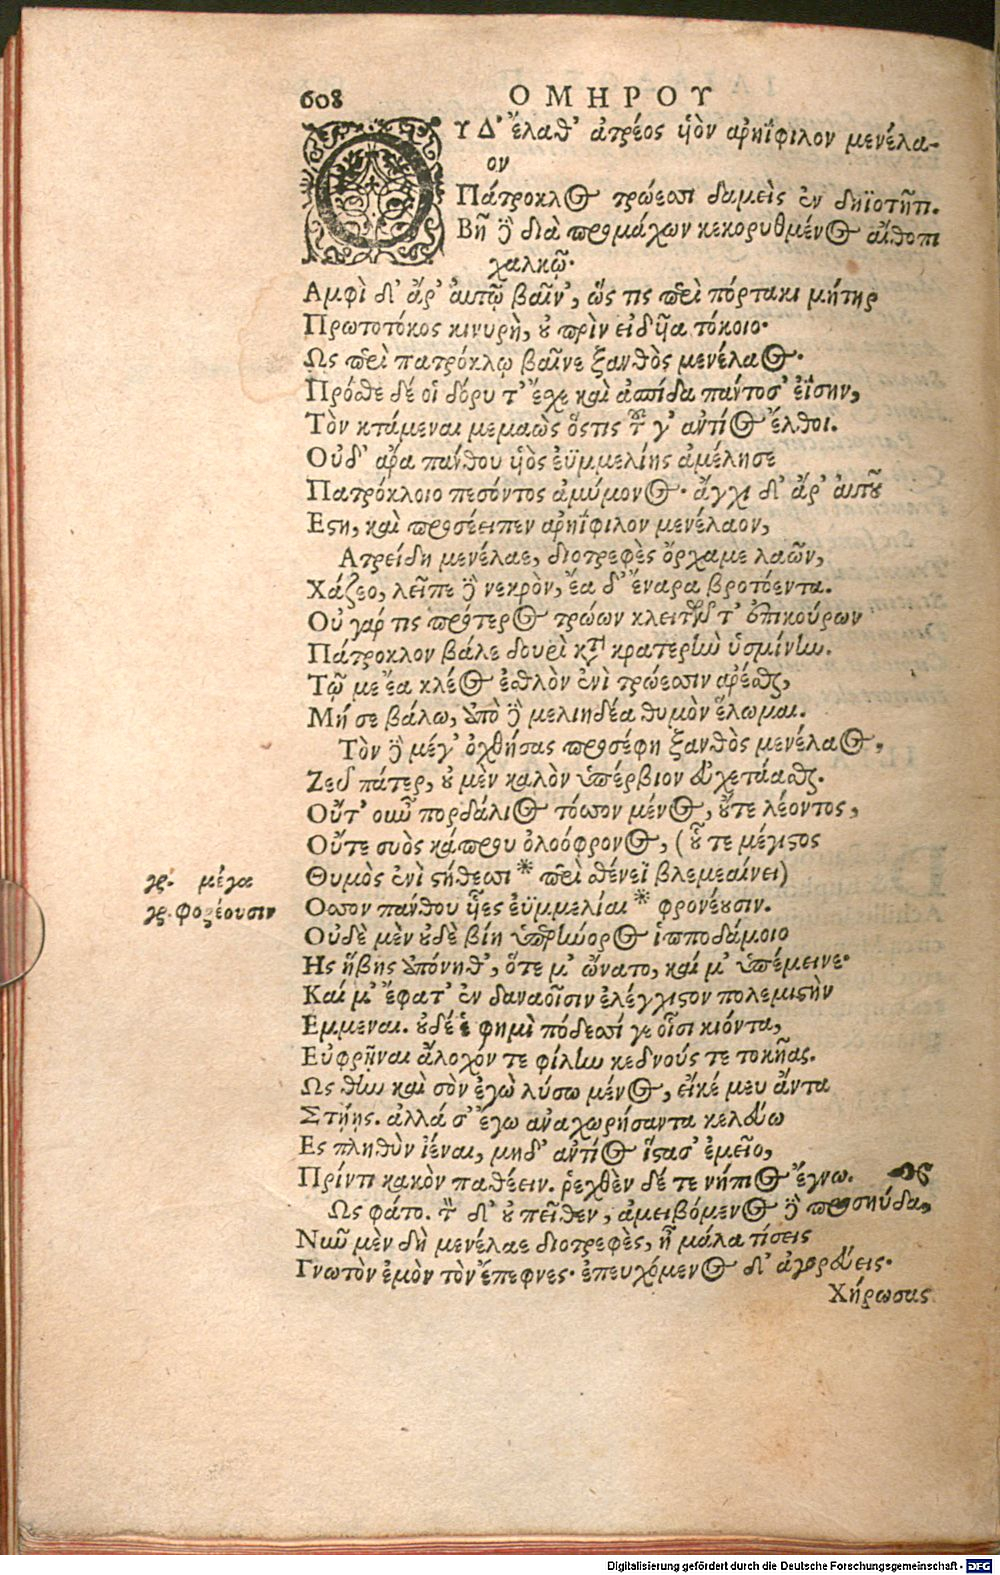 608 ΟΜΗΡΟΥ
ΟΥΔ' ἔλαθ' ἀτρέος υἱὸν ἀρηΐφιλον μενέλα-
ον
Πάτροκλος τρώεσσι δαμεὶς ἐν δηϊοτῆτι.
Βῆ δὲ διὰ προμάχων κεκορυθμένος αἴθοπι
χαλκῷ·
Αμφὶ δ' ἄρ' αὐτῷ βαῖν', ὥς τις περὶ πόρτακι μήτηρ
Πρωτοτόκος κινυρὴ, οὐ πρὶν εἰδυῖα τόκοιο·
Ως περὶ πατρόκλῳ βαῖνε ξανθὸς μενέλαος.
Πρόσθε δέ οἱ δόρυ τ' ἔσχε καὶ ἀσπίδα πάντοσ' ἐΐσην,
Τὸν κτάμεναι μεμαὼς ὅστις τοῦ γ' ἀντίος ἔλθοι.
Οὐδ' ἄρα πάνθου υἱὸς ἐϋμμελίης ἀμέλησε
Πατρόκλοιο πεσόντος ἀμύμονος· ἄγχι δ' ἄρ' αὐτοῦ
Εστη, καὶ προσέειπεν ἀρηΐφιλον μενέλαον,
Ατρείδη μενέλαε, διοτρεφὲς ὄρχαμε λαῶν,
Χάζεο, λεῖπε δὲ νεκρὸν, ἔα δ' ἔναρα βροτόεντα.
Οὐ γάρ τις πρότερος τρώων κλειτῶν τ' ἐπικούρων
Πάτροκλον βάλε δουρὶ κατὰ κρατερὴν ὑσμίνην.
Τῷ με ἔα κλέος ἐσθλὸν ἐνὶ τρώεσσιν ἀρέσθαι,
Μή σε βάλω, ἀπὸ δὲ μελιηδέα θυμὸν ἕλωμαι.
Τὸν δὲ μέγ' ὀχθήσας προσέφη ξανθὸς μενέλαος,
Ζεῦ πάτερ, οὐ μὲν καλὸν ὑπέρβιον εὐχετάασθαι.
Οὔτ' οὖν πορδάλιος τόσσον μένος, οὔτε λέοντος,
Οὔτε συὸς κάπρου ὀλοόφρονος, (οὗ τε μέγιστος
Θυμὸς ἐνὶ στήθεσσι * περὶ σθένεϊ βλεμεαίνει)
γρ. μέγα
Οσσον πάνθου υἷες ἐϋμμελίαι * φρονέουσιν.
γρ. φορέουσιν
Οὐδὲ μὲν οὐδὲ βίη ὑπερήνορος ἱπποδάμοιο
Ης ἥβης ἀπόνηθ', ὅτε μ' ὤνατο, καί μ' ὑπέμεινε·
Καί μ' ἔφατ' ἐν δαναοῖσιν ἐλέγχιστον πολεμιστὴν
Εμμεναι. οὐδέ ἑ φημὶ πόδεσσί γε οἷσι κιόντα,
Εὐφρῆναι ἄλοχόν τε φίλην κεδνούς τε τοκῆας.
Ως θην καὶ σὸν ἐγὼ λύσω μένος, εἴκέ μευ ἄντα
Στήῃς. ἀλλά σ' ἔγω ἀναχωρήσαντα κελεύω
Ες πληθὺν ἰέναι, μηδ' ἀντίος ἵστασ' ἐμεῖο,
Πρίντι κακὸν παθέειν. ῥεχθὲν δέ τε νήπιος ἔγνω.
Ως φάτο. τὸν δ' οὐ πεῖθεν, ἀμειβόμενος δὲ προσηύδα,
Νῦν μὲν δὴ μενέλαε διοτρεφὲς, ἦ μάλα τίσεις
Γνωτὸν ἐμὸν τὸν ἔπεφνες· ἐπευχόμενος δ' ἀγορεύεις·
Χήρωσας
Digitalisierung gefördert durch die Deutsche Forschungsgemeinschaft - DFG